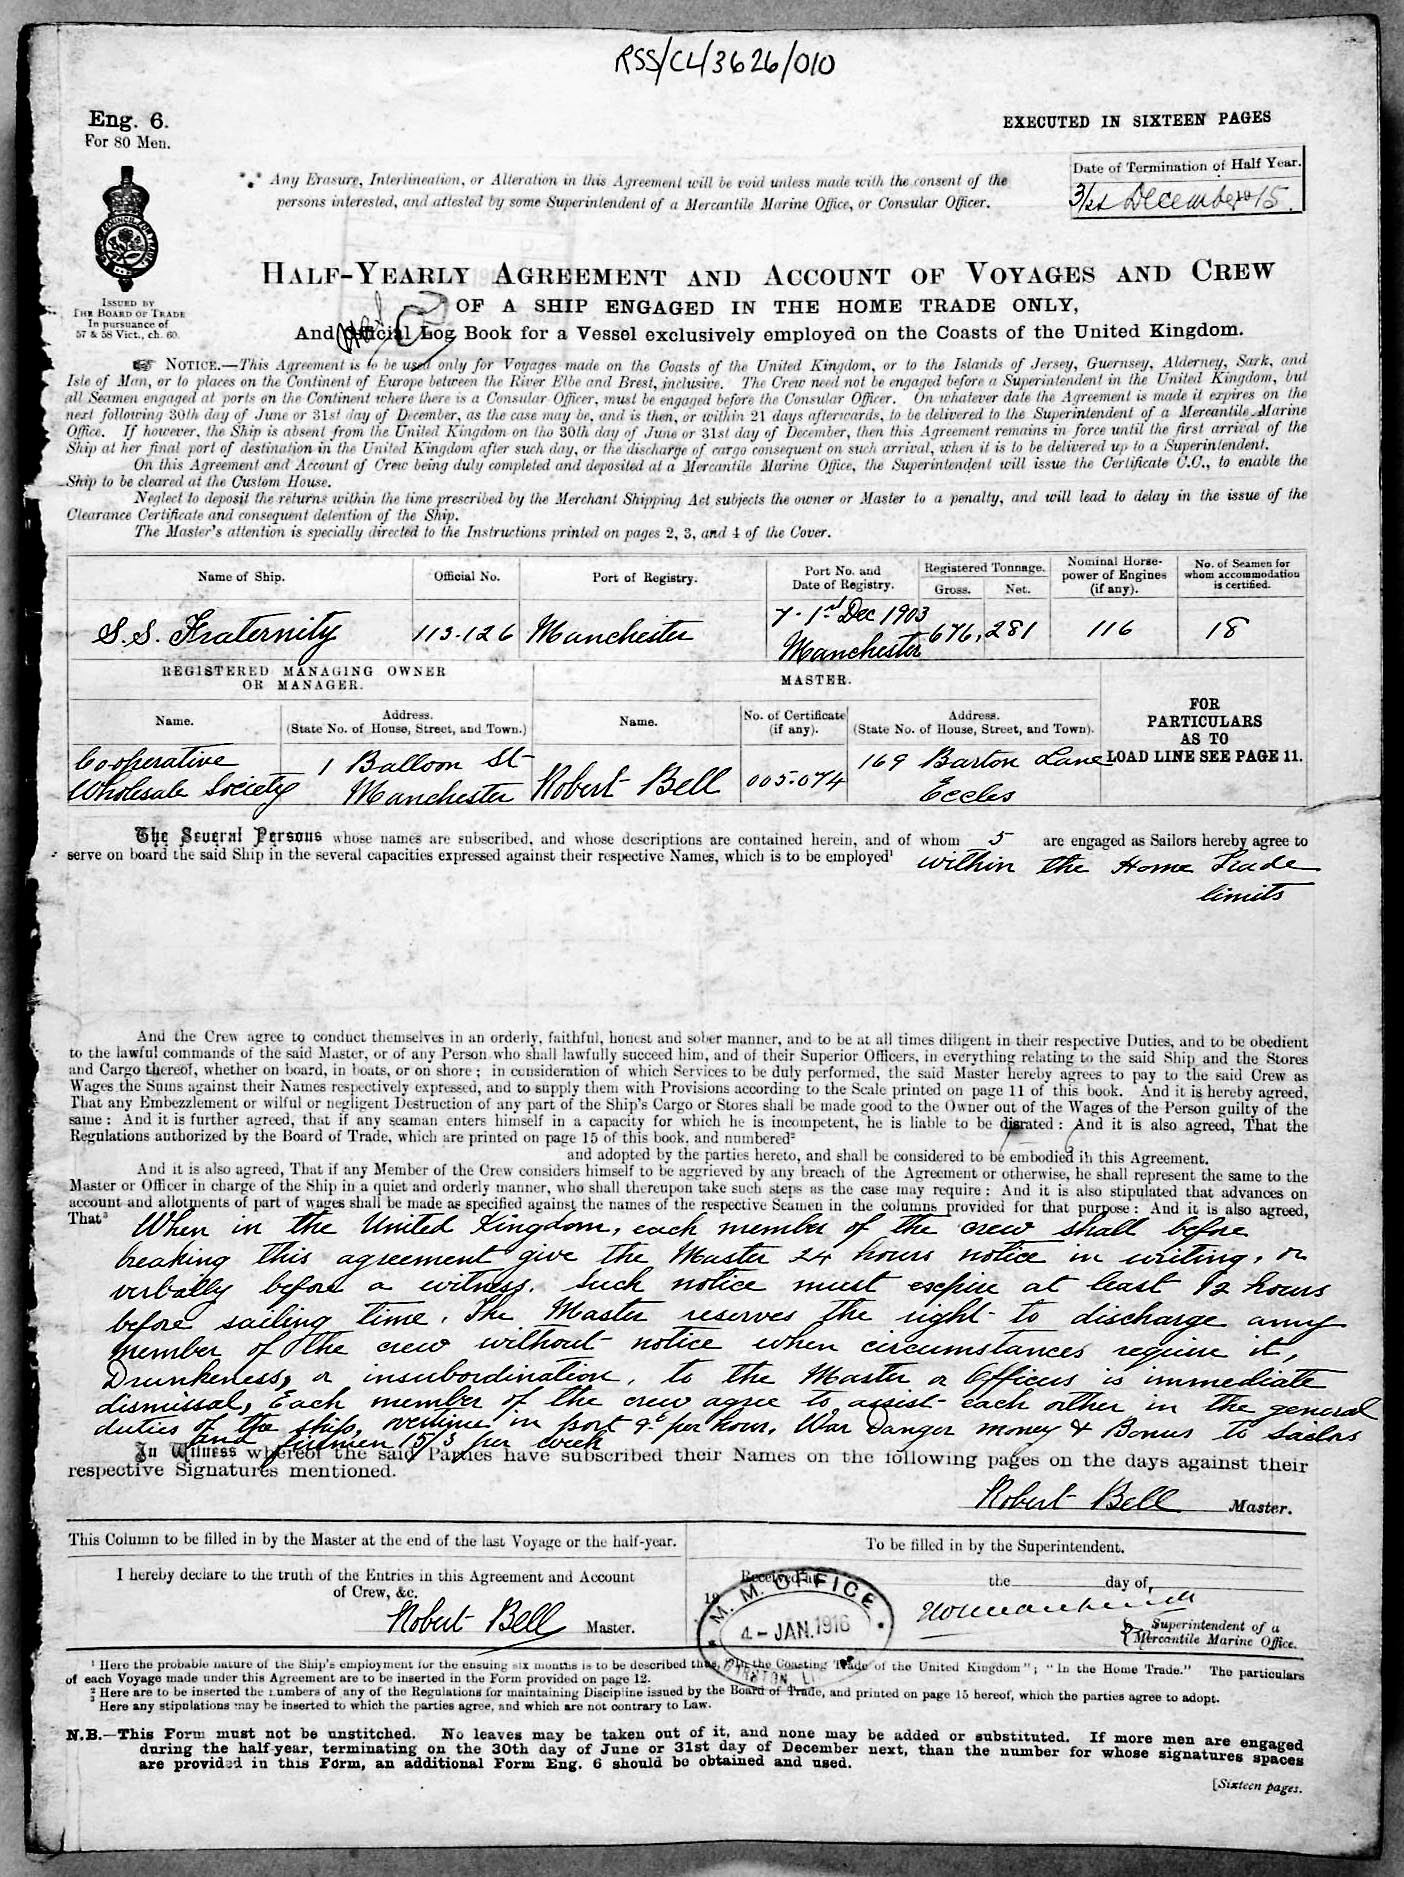 RSS/CL/3626/010
Eng. 6.
For 80 Men.
EXECUTED IN SIXTEEN PAGES
Date of Termination of Half Year.
31st December 1915.
ISSUED BY
THE BOARD OF TRADE
In pursuance of
57 & 58 Vict., ch. 60.
*.* Any Erasure, Interlineation, or Alteration in this Agreement will be void unless made with the consent of the
persons interested, and attested by some Superintendent of a Mercantile Marine Office, or Consular Officer.
HALF-YEARLY AGREEMENT AND ACCOUNT OF VOYAGES AND CREW
OF A SHIP ENGAGED IN THE HOME TRADE ONLY,
And Official Log Book for a Vessel exclusively employed on the Coasts of the United Kingdom.
☞ NOTICE.—This Agreement is to be used only for Voyages made on the Coasts of the United Kingdom, or to the Islands of Jersey, Guernsey, Alderney, Sark, and
Isle of Man, or to places on the Continent of Europe between the River Elbe and Brest, inclusive. The Crew need not be engaged before a Superintendent in the United Kingdom, but
all Seamen engaged at ports on the Continent where there is a Consular Officer, must be engaged before the Consular Officer. On whatever date the Agreement is made it expires on the
next following 30th day of June or 31st day of December, as the case may be, and is then, or within 21 days afterwards, to be delivered to the Superintendent of a Mercantile Marine
Office. If however, the Ship is absent from the United Kingdom on the 30th day of June or 31st day of December, then this Agreement remains in force until the first arrival of the
Ship at her final port of destination in the United Kingdom after such day, or the discharge of cargo consequent on such arrival, when it is to be delivered up to a Superintendent.
On this Agreement and Account of Crew being duly completed and deposited at a Mercantile Marine Office, the Superintendent will issue the Certificate C.C., to enable the
Ship to be cleared at the Custom House.
Neglect to deposit the returns within the time prescribed by the Merchant Shipping Act subjects the owner or Master to a penalty, and will lead to delay in the issue of the
Clearance Certificate and consequent detention of the Ship.
The Master's attention is specially directed to the Instructions printed on pages 2, 3, and 4 of the Cover.
Name of Ship. Official No. Port of Registry. Port No. and Date of Registry. Registered Tonnage. Gross. Net. Nominal Horse-power of Engines (if any). No. of Seamen for whom accommodation is certified.
S.S. Fraternity 113.126 Manchester 7. 1st Dec 1903 Manchester 676, 281 116 18
REGISTERED MANAGING OWNER OR MANAGER. MASTER.
Name. Address. (State No. of House, Street, and Town.) Name. No. of Certificate (if any). Address. (State No. of House, Street, and Town).
FOR PARTICULARS AS TO LOAD LINE SEE PAGE 11.
Cooperative Wholesale Society 1 Balloon St Manchester Robert Bell 005.074 169 Barton Lane Eccles
The Several Persons whose names are subscribed, and whose descriptions are contained herein, and of whom 5 are engaged as Sailors hereby agree to
serve on board the said Ship in the several capacities expressed against their respective Names, which is to be employed¹ within the Home Trade
limits
And the Crew agree to conduct themselves in an orderly, faithful, honest and sober manner, and to be at all times diligent in their respective Duties, and to be obedient
to the lawful commands of the said Master, or of any Person who shall lawfully succeed him, and of their Superior Officers, in everything relating to the said Ship and the Stores
and Cargo thereof, whether on board, in boats, or on shore; in consideration of which Services to be duly performed, the said Master hereby agrees to pay to the said Crew as
Wages the Sums against their Names respectively expressed, and to supply them with Provisions according to the Scale printed on page 11 of this book. And it is hereby agreed,
That any Embezzlement or wilful or negligent Destruction of any part of the Ship's Cargo or Stores shall be made good to the Owner out of the Wages of the Person guilty of the
same: And it is further agreed, that if any seaman enters himself in a capacity for which he is incompetent, he is liable to be disrated: And it is also agreed, That the
Regulations authorized by the Board of Trade, which are printed on page 15 of this book, and numbered²
and adopted by the parties hereto, and shall be considered to be embodied in this Agreement.
And it is also agreed, That if any Member of the Crew considers himself to be aggrieved by any breach of the Agreement or otherwise, he shall represent the same to the
Master or Officer in charge of the Ship in a quiet and orderly manner, who shall thereupon take such steps as the case may require: And it is also stipulated that advances on
account and allotments of part of wages shall be made as specified against the names of the respective Seamen in the columns provided for that purpose: And it is also agreed,
That³ When in the United Kingdom, each member of the crew shall before
breaking this agreement give the Master 24 hours notice in writing, or
verbally before a witness. Such notice must expire at least 12 hours
before sailing time. The Master reserves the right to discharge any
member of the crew without notice when circumstances require it,
Drunkeness, or insubordination, to the Master or Officers is immediate
dismissal, Each member of the crew agree to assist each other in the general
duties of the ship, overtime in port 9d per hour. War Danger money & Bonus to Sailors
and firemen 15/3 per week
In Witness whereof the said Parties have subscribed their Names on the following pages on the days against their
respective Signatures mentioned.
Robert Bell Master.
This Column to be filled in by the Master at the end of the last Voyage or the half-year.
I hereby declare to the truth of the Entries in this Agreement and Account
of Crew, &c.
Robert Bell Master.
To be filled in by the Superintendent.
Received at the day of,
19
M. M. OFFICE
4 - JAN. 1916
Superintendent of a
Mercantile Marine Office.
¹ Here the probable nature of the Ship's employment for the ensuing six months is to be described thus, "In the Coasting Trade of the United Kingdom"; "In the Home Trade." The particulars
of each Voyage made under this Agreement are to be inserted in the Form provided on page 12.
² Here are to be inserted the numbers of any of the Regulations for maintaining Discipline issued by the Board of Trade, and printed on page 15 hereof, which the parties agree to adopt.
³ Here any stipulations may be inserted to which the parties agree, and which are not contrary to Law.
N.B.—This Form must not be unstitched. No leaves may be taken out of it, and none may be added or substituted. If more men are engaged
during the half-year, terminating on the 30th day of June or 31st day of December next, than the number for whose signatures spaces
are provided in this Form, an additional Form Eng. 6 should be obtained and used.
[Sixteen pages.